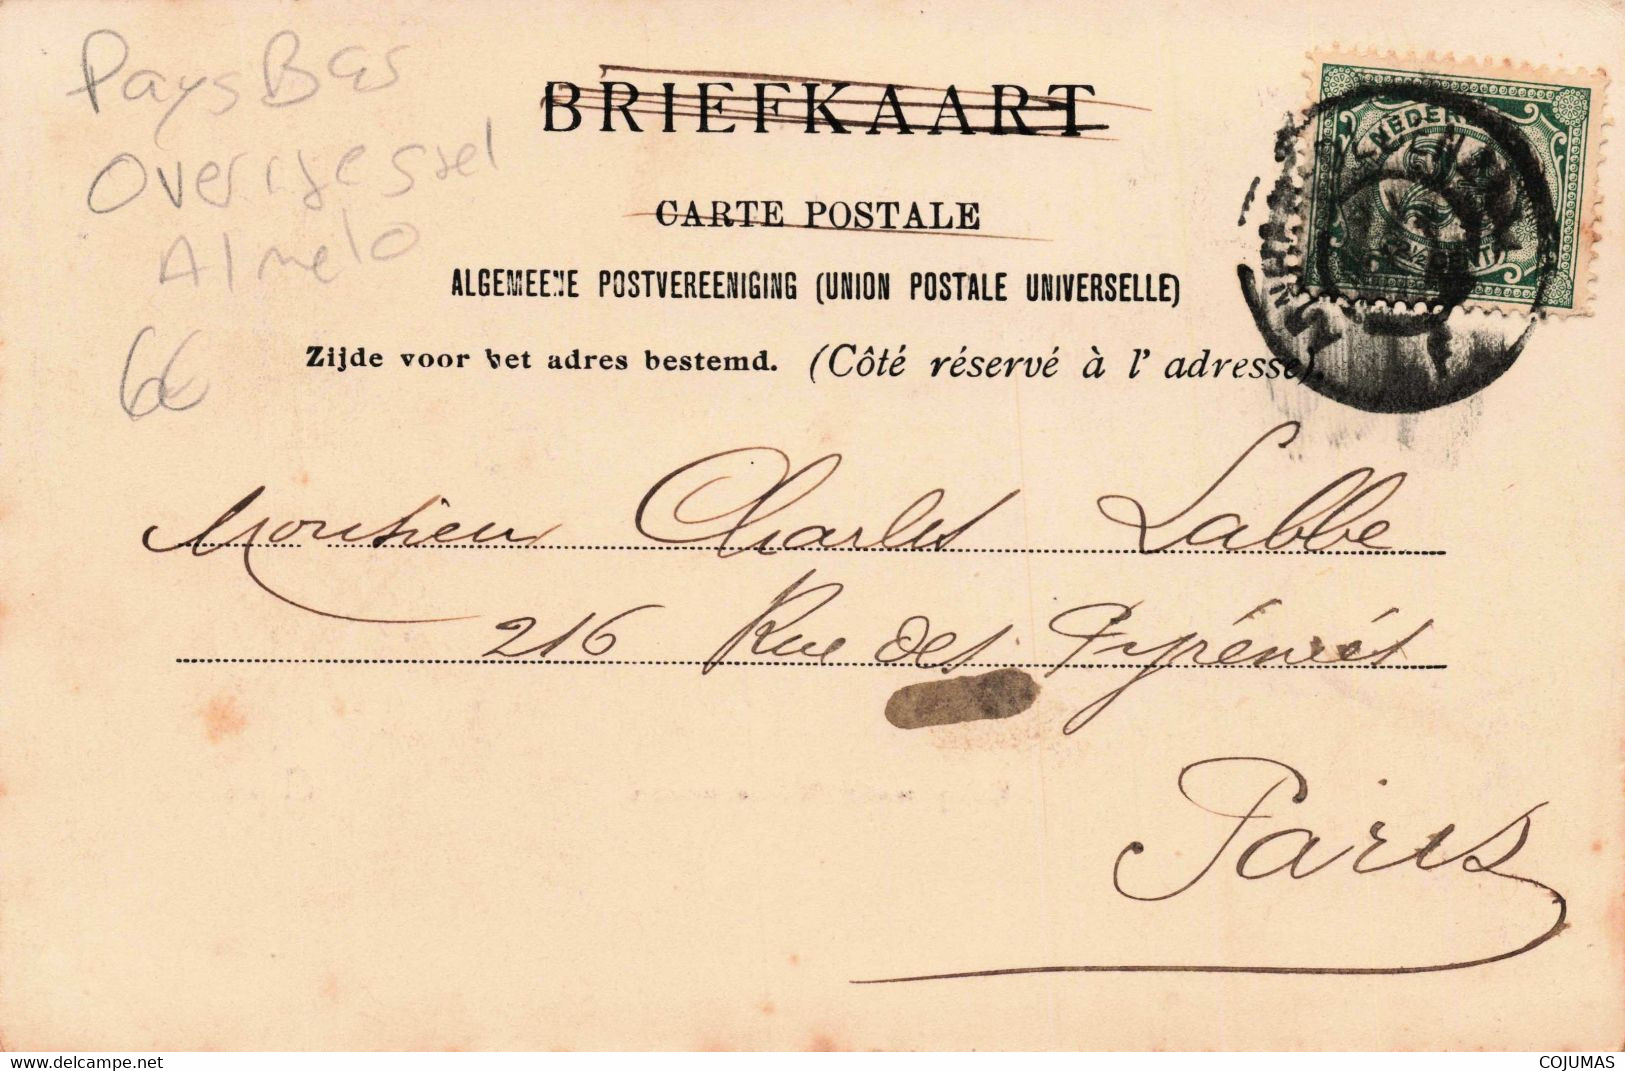 Pays Bas
Overijessel
Almelo
6€
BRIEFKAART
CARTE POSTALE
ALGEMEENE POSTVEREENIGING (UNION POSTALE UNIVERSELLE)
Zijde voor het adres bestemd. (Côté réservé à l' adresse).
NEDER
2½ CENT
Monsieur Charles Labbe
216 Rue des Pyrénées
Paris
COJUMAS